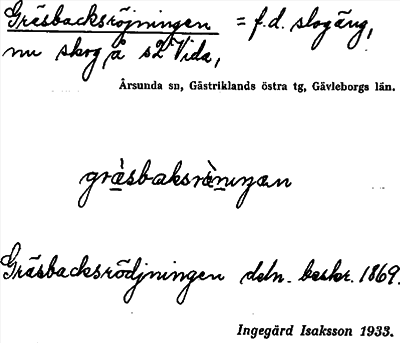 Gräsbacksröjningen = f.d. slogäng,
nu skog å s2 Vida,
Årsunda sn, Gästriklands östra tg, Gävleborgs län.
gràsbaksrèniŋan
Gräsbacksrödjningen deln. beskr. 1869.
Ingegärd Isaksson 1933.